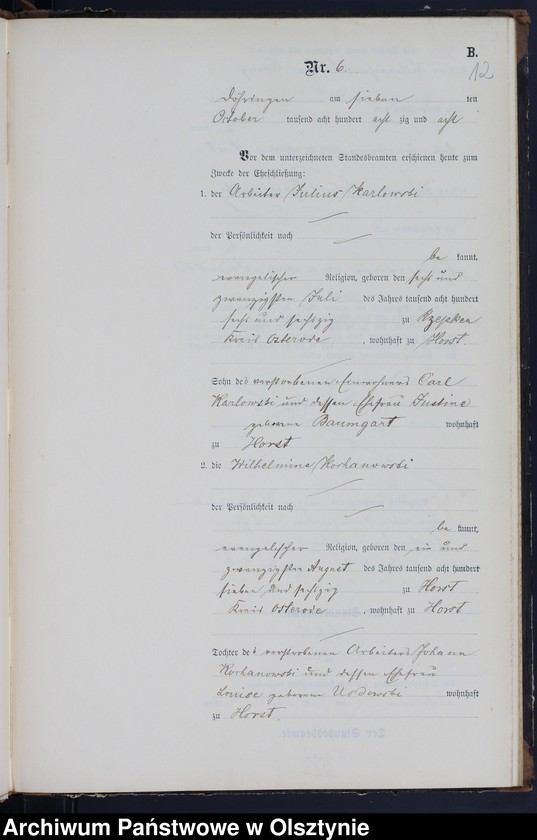 B.
12
Nr. 6.
Döhringen am sieben ten
October tausend acht hundert acht zig und acht
Vor dem unterzeichneten Standesbeamten erschienen heute zum
Zwecke der Eheschließung:
1. der Arbeiter Julius Karlowski
der Persönlichkeit nach
be kannt,
evangelischer Religion, geboren den sechs und
zwanzigsten Juli des Jahres tausend acht hundert
sechs und sechzig zu Rzepken
Kreis Osterode, wohnhaft zu Horst.
Sohn des verstorbenen Einwohners Carl
Karlowski und dessen Ehefrau Justine
geborene Baumgart wohnhaft
zu Horst
2. die Wilhelmine Kochanowski
der Persönlichkeit nach
be kannt,
evangelischer Religion, geboren den ein und
zwanzigsten August des Jahres tausend acht hundert
sieben und sechzig zu Horst
Kreis Osterode, wohnhaft zu Horst
Tochter des verstorbenen Arbeiters Johann
Kochanowski und dessen Ehefrau
Louise geborene wohnhaft
zu Horst.
Archiwum Państwowe w Olsztynie